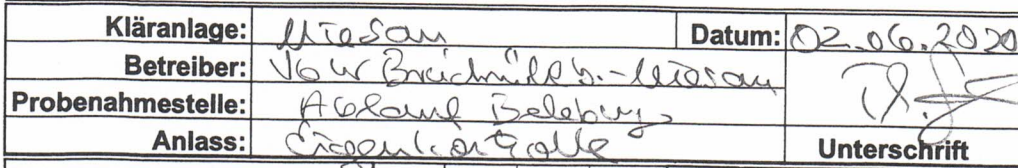 Kläranlage: Miesau Datum: 02.06.2020
Betreiber: VGW Bruchmühlb.-Miesau
Probenahmestelle: Ablauf Belebung
Anlass: Eigenkontrolle Unterschrift